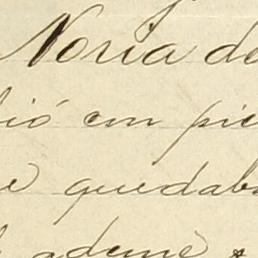 Noria de
ió con pie
e quedaba
ademe s